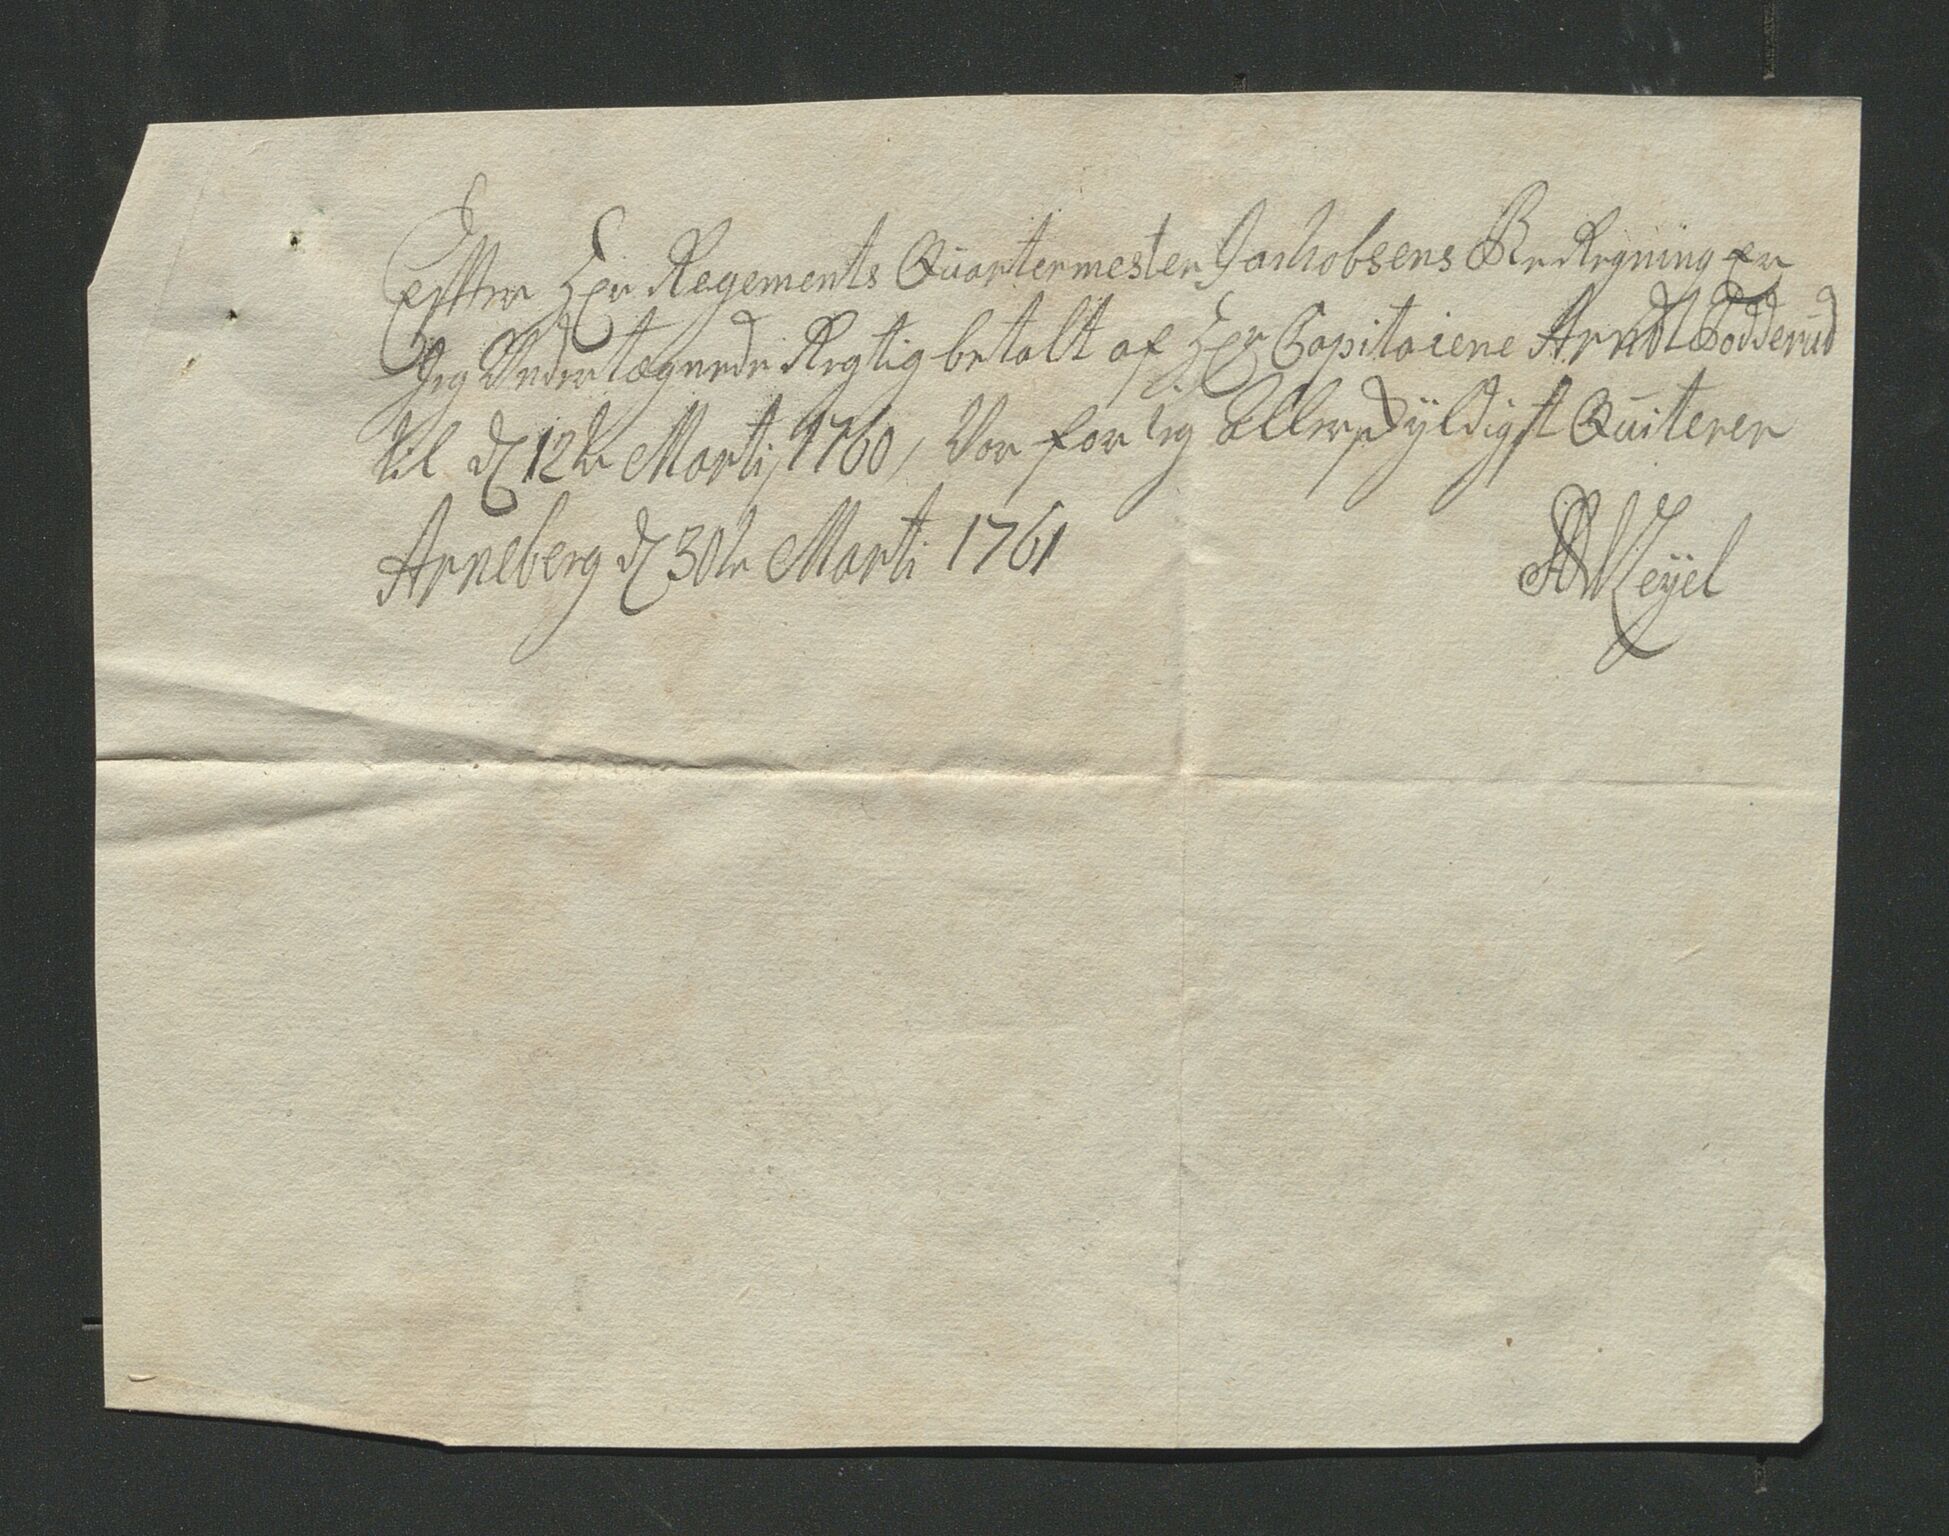 Effter Her Regements Quartermester Jachobsens BeRegning er
Jeg Undertægnede Rægtig betalt af Her Capitaiene Arndt Bodderud
til d 12te Marti 1760, Vor for ieg allerskyldigst Quiterer
Arneberg d 30te Marti 1761
Meyel